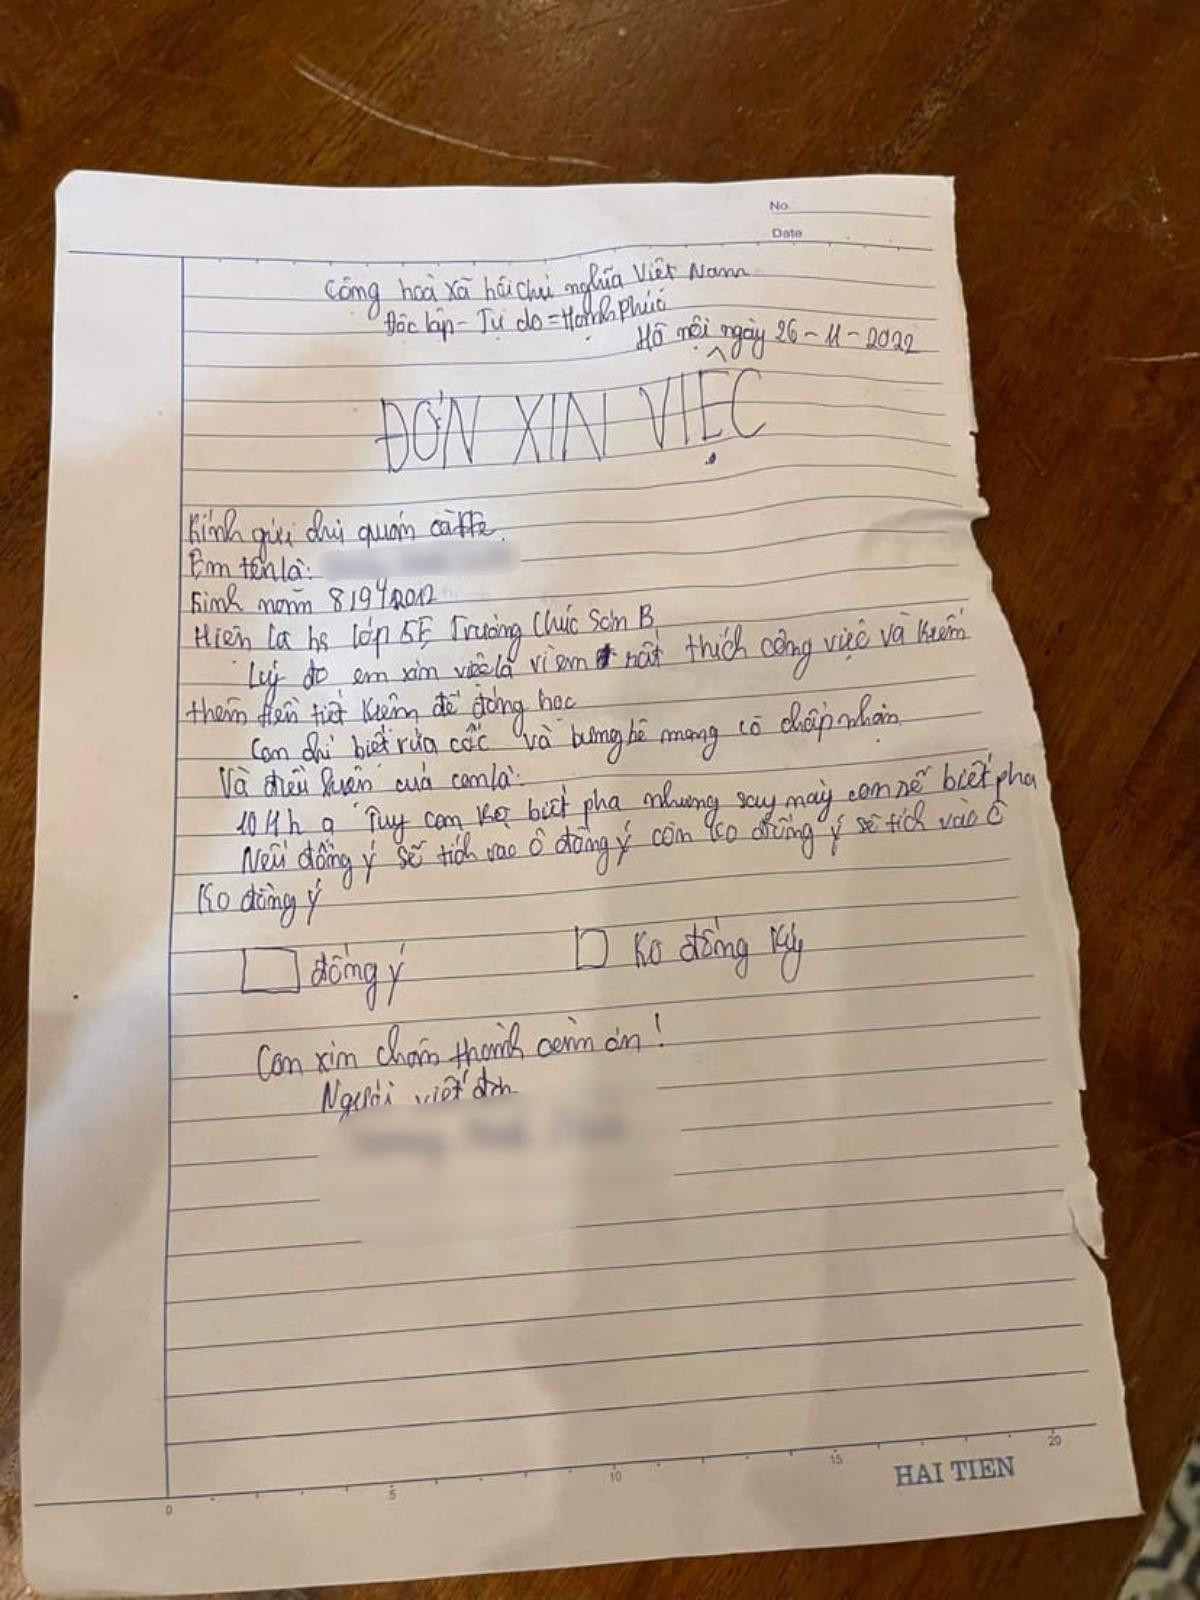 No.
Date
Công hoà xã hôi chủ nghĩa Việt Nam
Độc lập - Tự do = Hạnh Phúc
Hô nội ngày 26-11-2022
ĐƠN XIN VIỆC
Kính gửi chủ quán cà
Em tên là:
Sinh năm 2012
Hiên là hs lớp 5E Trường Chúc Sơn B
Lý do em xin việc là vì em rất thích công việc và kiếm
thêm tiền tiết kiêm để đóng học
Con chỉ biết rửa cốc và bưng bê mong cô chấp nhận
Và điều kiên của con là:
10 1h ạ Tuy con ko biết pha nhưng say này con sẽ biết pha
Nếu đồng ý sẽ tích vào ô đồng ý còn ko đồng ý sẽ tích vào ô
Ko đồng ý
đồng ý
Ko đồng ký
Con xin chân thành cảm ơn!
Người viết đơn
0 5 10 15 20
HAI TIEN